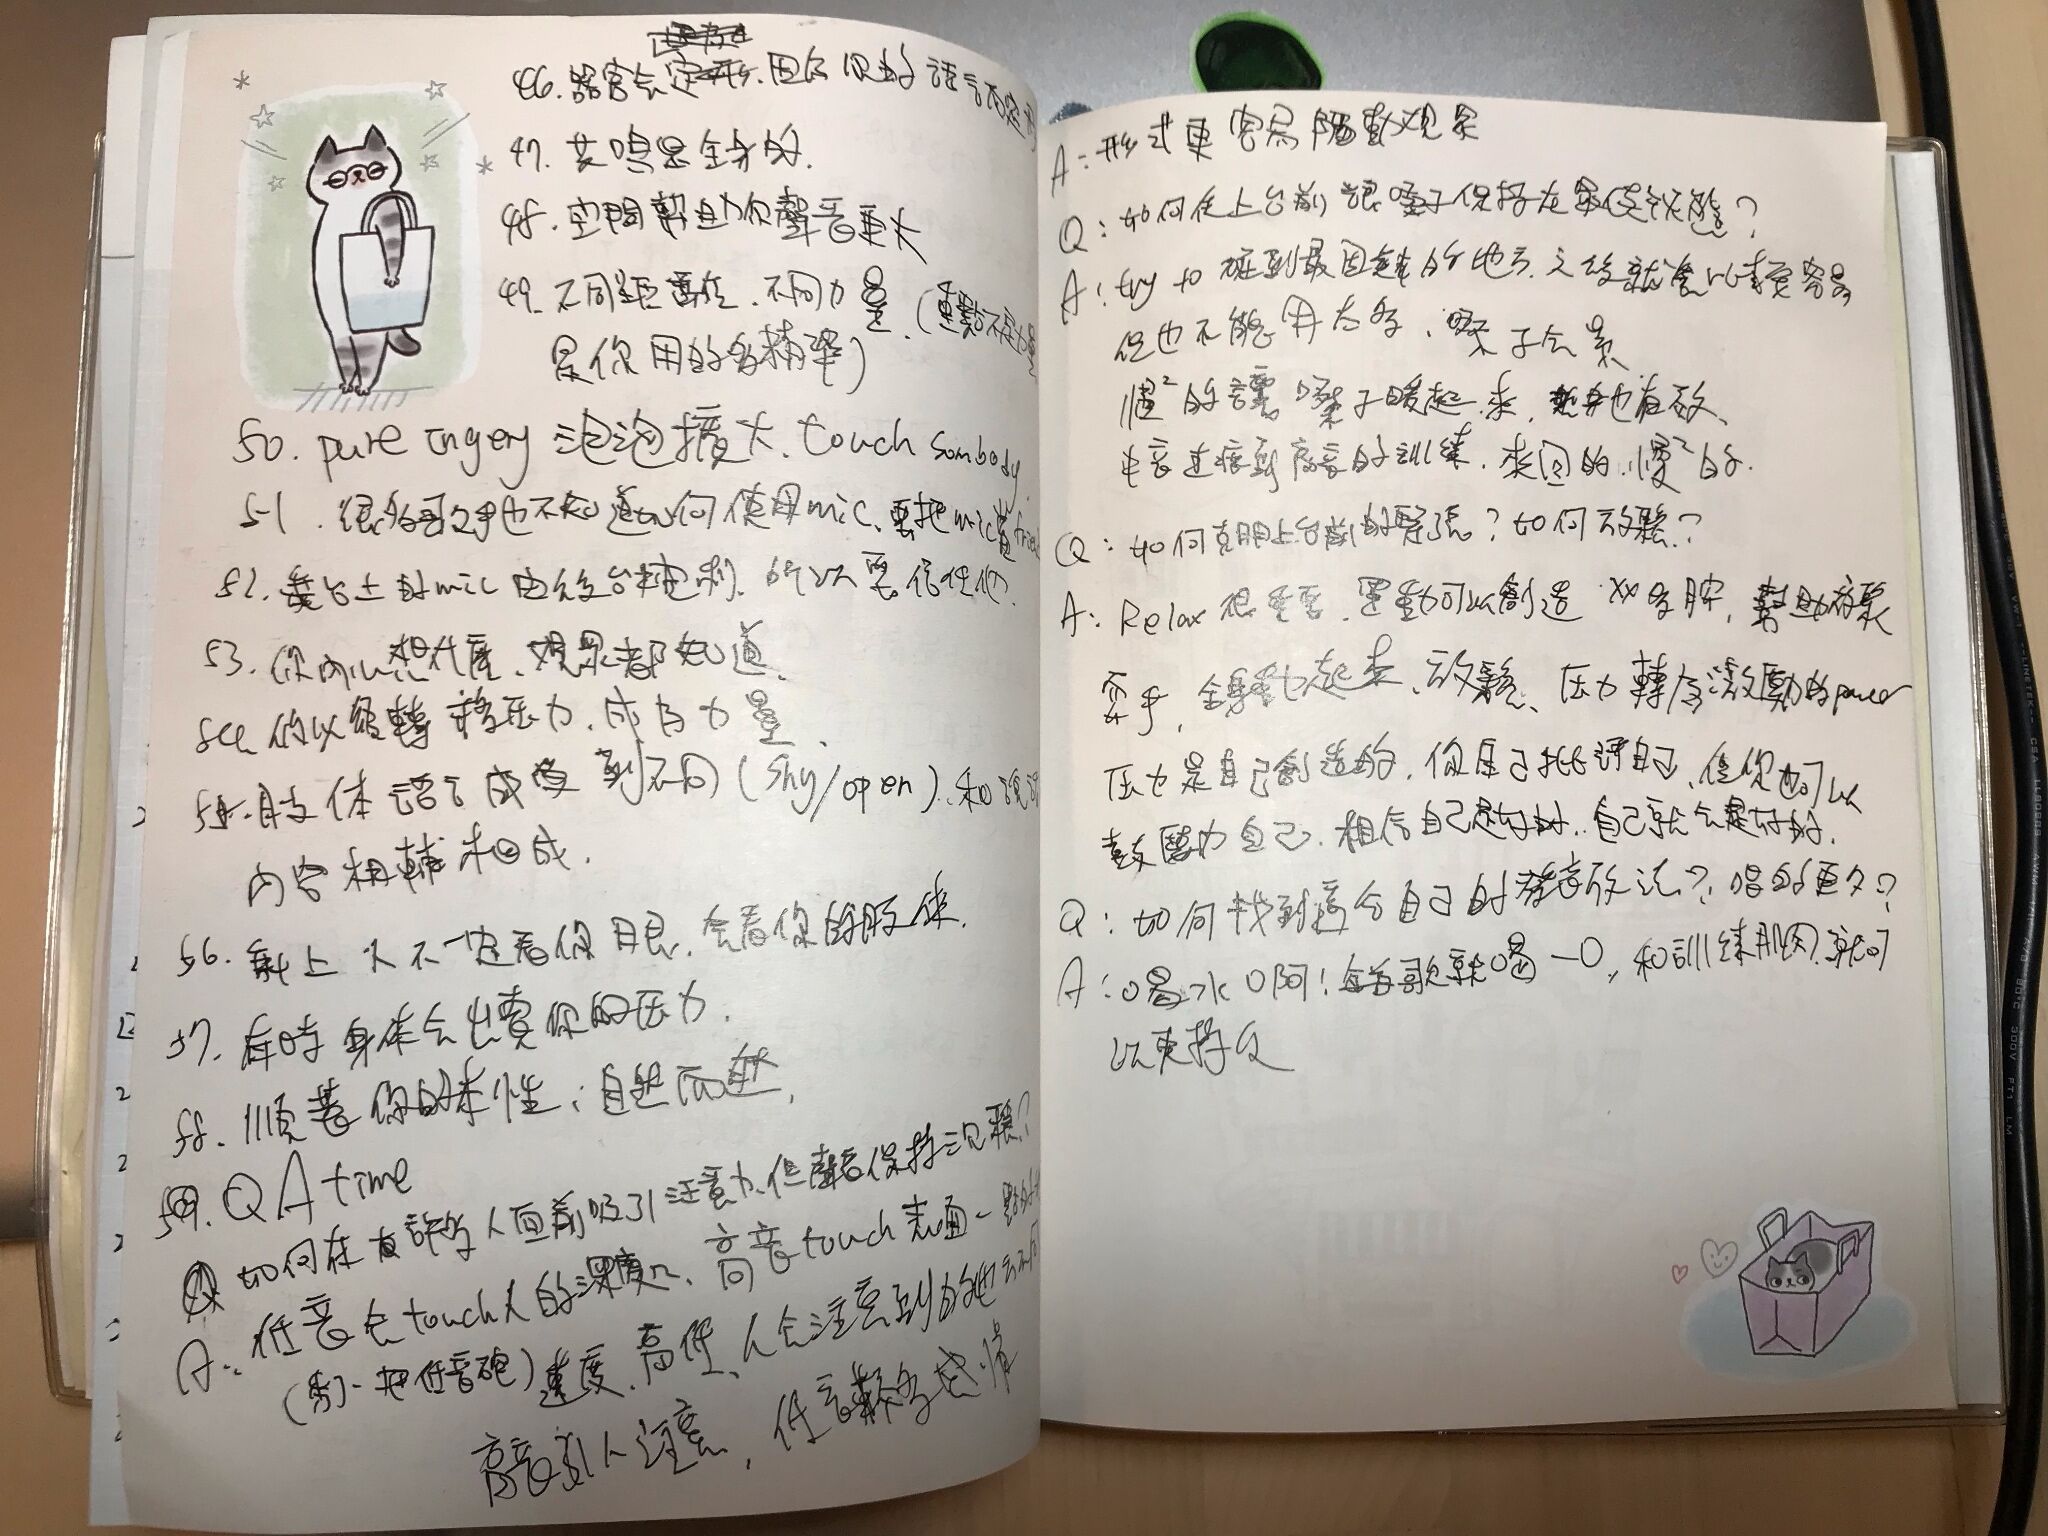 46. 器官会定形. 因為你的語言而定
47. 共鳴是全身的.
48. 空間幫助你聲音更大
49. 不同距離, 不同力量. (
是你用的多精準)
50. pure 泡泡擴大. touch sombody.
51. 很多歌手也不知道如何使用mic. 要把mic當frie
52. 舞台上的mic由後台控制. 所以要信任他.
53. 你內心想什麼, 觀眾都知道.
54. 你以後轉移压力. 成为力量.
55. 肢体語言感受到不同 (shy/open). 和
內容相輔相成.
56. 載上 人不一定看你眼. 会看你的肢体.
57. 有時身体会出賣你的压力.
58. 順著你的本性; 自然而然.
59. QA time
Q 如何在許多人面前吸引注意力. 但聲音保持沉穩?
A: 低音会touch人的深度, 高音touch表面一點的
(別一把低音砲) 速度、高低、人会注意到的地方不同
高音引人注意, 低音較多感情
A: 形式更容易觸動观眾
Q: 如何在上台前讓嗓子保持在最佳狀態?
A: try to 碰到最困難的地方. 之後就會比較容易
但也不能用太多, 嗓子会累
慢²的讓嗓子暖起來,
中音連接到高音的訓練. 來回的. 慢²的.
Q: 如何克服上台前的緊張? 如何放鬆?
A: Relax很重要. 運動可以創造 XX多胺, 幫助放鬆
要手, 全身動起來、放鬆、压力轉為激勵的power
压力是自己創造的. 你自己批評自己, 但你也可以
鼓勵自己. 相信自己是好的. 自己就会是好的.
Q: 如何找到適合自己的發音方法?, 唱的更久?
A: 喝水啊! 每首歌就喝一口, 和訓練肌肉, 就可
以更持久